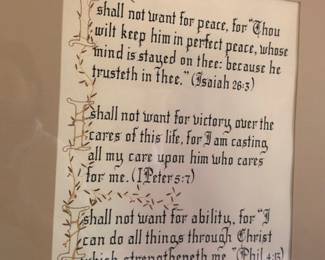 shall not want for peace, for "Thou
wilt keep him in perfect peace, whose
mind is stayed on thee: because he
trusteth in Thee." (Isaiah 26:3)
shall not want for victory over the
cares of this life, for I am casting
all my care upon him who cares
for me. (I Peter 5:7)
shall not want for ability, for "I
can do all things through Christ
which strengtheneth me." (Phil 4:13)